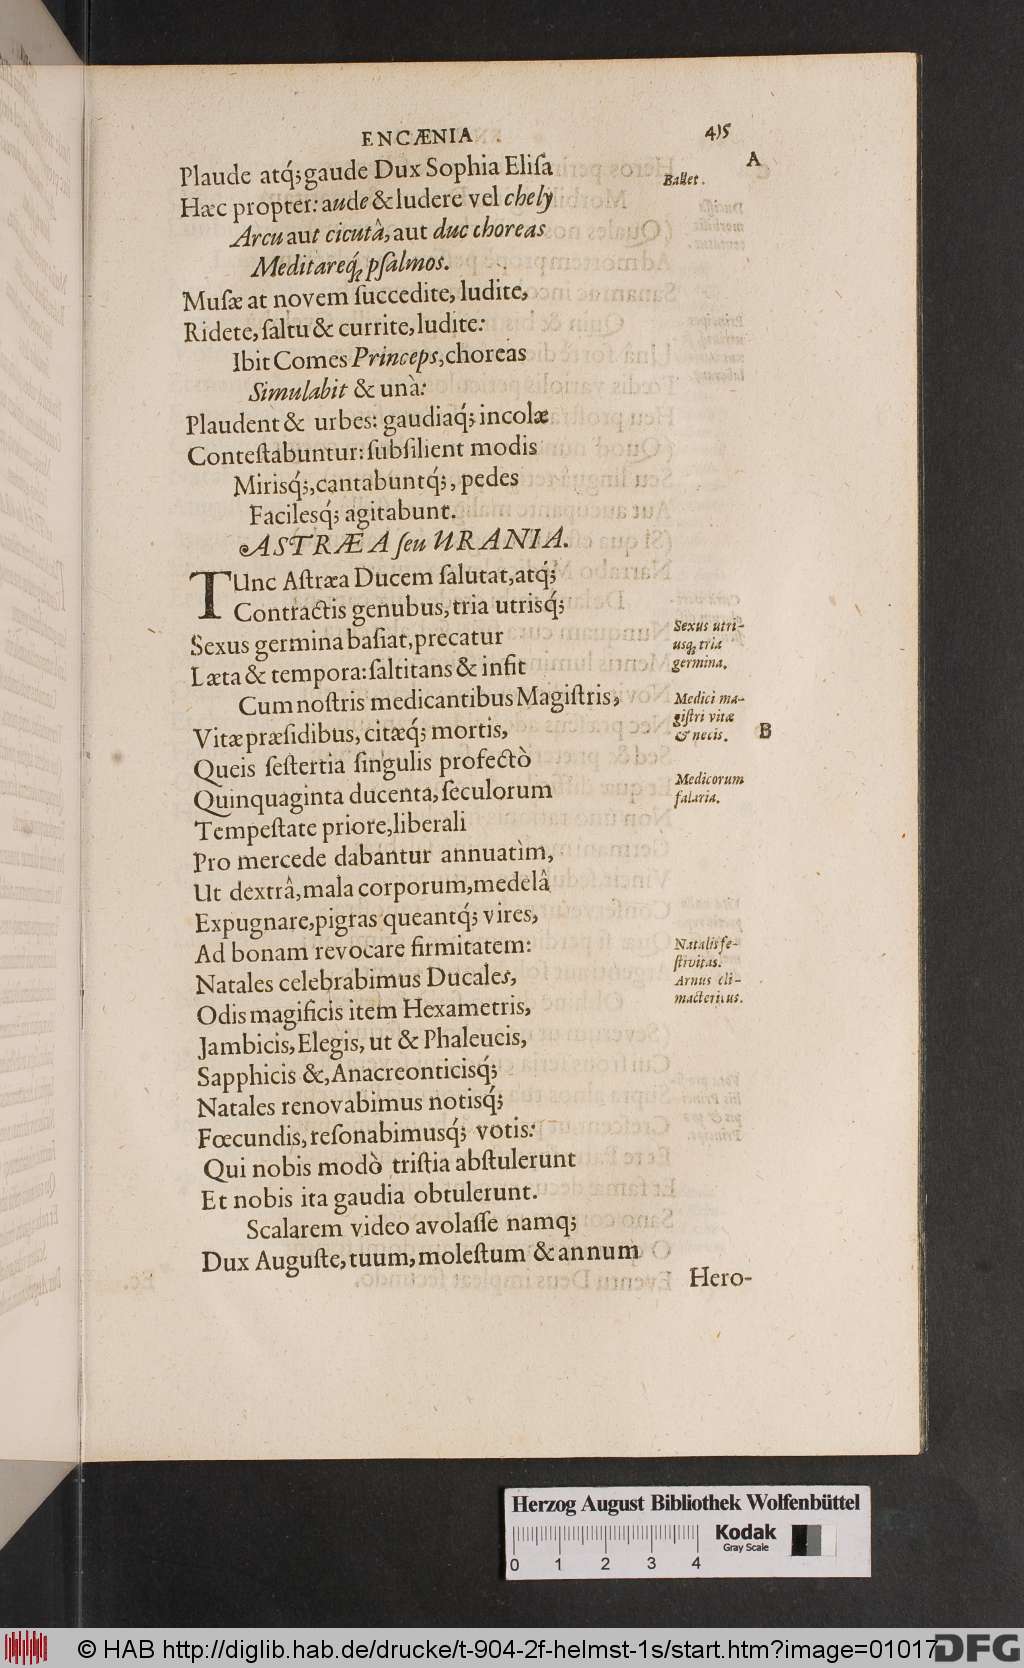 ENCÆNIA 415
A
Plaude atq́; gaude Dux Sophia Eliſa
Ballet.
Hæc propter: aude & ludere vel chely
Arcu aut cicutâ, aut duc choreas
Meditareq́; pſalmos.
Muſæ at novem ſuccedite, ludite,
Ridete, ſaltu & currite, ludite:
Ibit Comes Princeps, choreas
Simulabit & unà:
Plaudent & urbes: gaudiaq́; incolæ
Conteſtabuntur: ſubſilient modis
Mirisq́;, cantabuntq́;, pedes
Facilesq́; agitabunt.
ASTRÆA ſeu URANIA.
TUnc Aſtræa Ducem ſalutat, atq́;
Contractis genubus, tria utrisq́;
Sexus germina baſiat, precatur
Sexus utri-
usq́; tria
germina.
Læta & tempora: ſaltitans & infit
Cum noſtris medicantibus Magiſtris,
Medici ma-
giſtri vitæ
& necis.
B
Vitæ præſidibus, citæq́; mortis,
Queis ſeſtertia ſingulis profectò
Quinquaginta ducenta, ſeculorum
Medicorum
ſalaria.
Tempeſtate priore, liberali
Pro mercede dabantur annuatìm,
Ut dextrâ, mala corporum, medelâ
Expugnare, pigras queantq́; vires,
Ad bonam revocare firmitatem:
Natalis fe-
ſtivitas.
Natales celebrabimus Ducales,
Annus cli-
mactericus.
Odis magificis item Hexametris,
Jambicis, Elegis, ut & Phaleucis,
Sapphicis &, Anacreonticisq́;
Natales renovabimus notisq́;
Fœcundis, reſonabimusq́; votis:
Qui nobis modò triſtia abſtulerunt
Et nobis ita gaudia obtulerunt.
Scalarem video avolaſſe namq;
Dux Auguſte, tuum, moleſtum & annum
Hero-
Herzog August Bibliothek Wolfenbüttel
Kodak
Gray Scale
0 1 2 3 4
© HAB http://diglib.hab.de/drucke/t-904-2f-helmst-1s/start.htm?image=01017
DFG